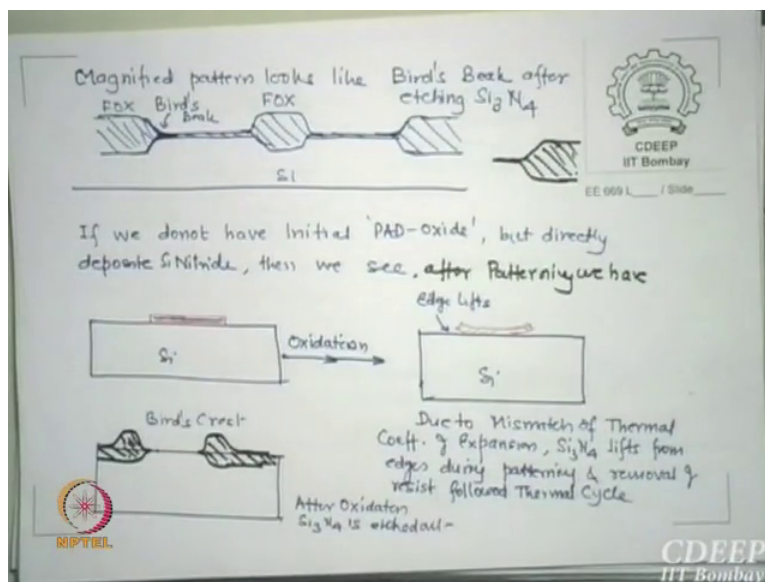 Magnified pattern looks like Bird's Beak after
etching Si3N4
FOX Bird's Beak FOX
Si
CDEEP
IIT Bombay
EE 669 L____ / Slide____
If we donot have initial 'PAD-Oxide', but directly
deposite SiNitride, then we see, after Patterning we have
Edge lifts
Si
Oxidation
Si
Bird's Crest
Due to Mismatch of Thermal
Coeff. of Expansion, Si3N4 lifts from
edges during patterning & removal of
resist followed Thermal Cycle
After Oxidation
Si3N4 is etched out-
NPTEL
CDEEP
IIT Bombay